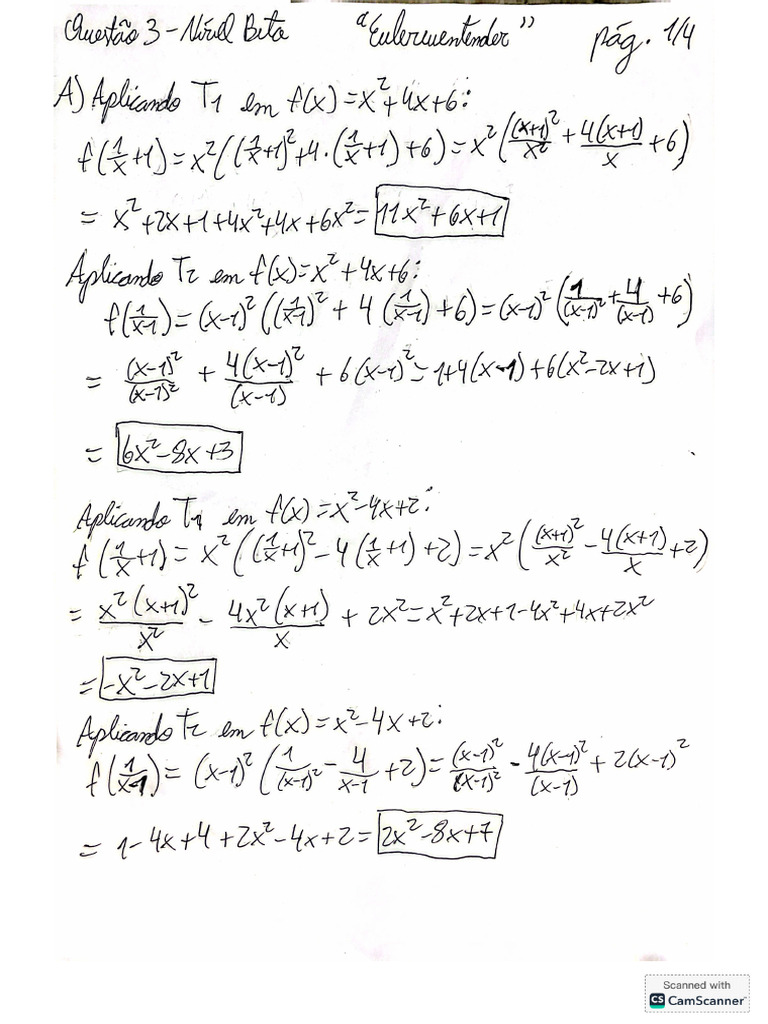 Questão 3 - Nível Beta "Eulerwentender" pág. 1/4
A) Aplicando T₁ em f(x) = x² + 4x + 6:
f(1/x + 1) = x²((1/x + 1)² + 4·(1/x + 1) + 6) = x²((x+1)²/x² + 4(x+1)/x + 6)
= x² + 2x + 1 + 4x² + 4x + 6x² = 11x² + 6x + 1
Aplicando T₂ em f(x) = x² + 4x + 6:
f(1/(x-1)) = (x-1)²((1/(x-1))² + 4(1/(x-1)) + 6) = (x-1)²(1/(x-1)² + 4/(x-1) + 6)
= (x-1)²/(x-1)² + 4(x-1)²/(x-1) + 6(x-1)² = 1 + 4(x-1) + 6(x² - 2x + 1)
= 6x² - 8x + 3
Aplicando T₁ em f(x) = x² - 4x + 2:
f(1/x + 1) = x²((1/x + 1)² - 4(1/x + 1) + 2) = x²((x+1)²/x² - 4(x+1)/x + 2)
= x²(x+1)²/x² - 4x²(x+1)/x + 2x² = x² + 2x + 1 - 4x² + 4x + 2x²
= -x² - 2x + 1
Aplicando T₂ em f(x) = x² - 4x + 2:
f(1/(x-1)) = (x-1)²(1/(x-1)² - 4/(x-1) + 2) = (x-1)²/(x-1)² - 4(x-1)²/(x-1) + 2(x-1)²
= 1 - 4x + 4 + 2x² - 4x + 2 = 2x² - 8x + 7
Scanned with
CS CamScanner